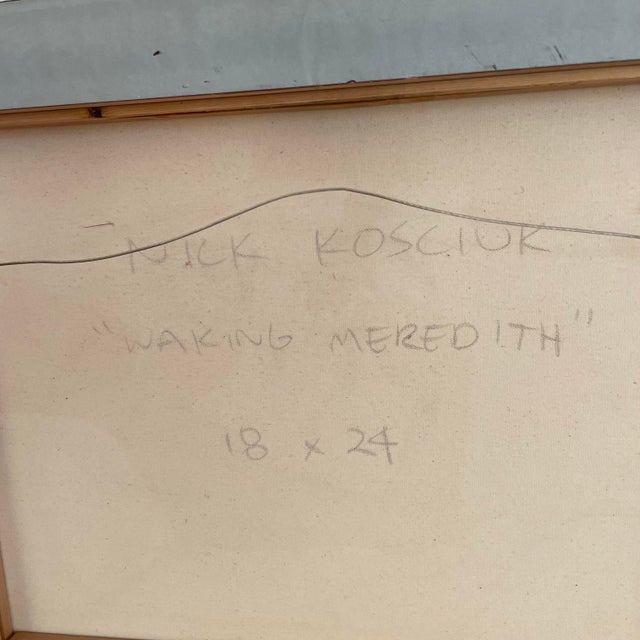 NICK KOSCIUK
"WAKING MEREDITH"
18 x 24